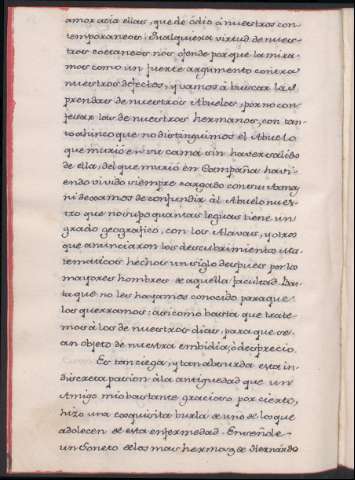 amor acia ellas, que de ódio à nuestros con
temporaneos; Qualquiera virtud de nues
tros coetaneos nos ofende porque la mira
mos como un fuerte argumento contra
nuestros defectos; y vamos à buscar las
prendas de nuestros Abuelos, por no con
fesar las de nuestros hermanos, con tan
to ahinco que no distinguimos el Abuelo
que murió en su cama sin haver salido
de ella, del que murió en Campaña havi
endo vivido siempre cargado con su
ni dexamos de confundir àl Abuelo nues
tro que no supo quantas leguas tiene un
grado geografico, con los Alavas, y otros
que anunciaron los descubrimientos
tematicos hechos un siglo despues por los
mayores hombres de aquella facultad. Bas
ta que no les hayamos conocido para que
los querramos: asi como basta que trate
mos à los de nuestros dias, para que se
an objeto de nuestra embidia, ò desprecio.
Es tan ciega, y tan absurda esta in
discreta pasion à la antiguedad que un
Amigo mio bastante gracioso por cierto,
hizo una exquisita burla de uno de los que
adolecen de esta enfermedad. Enseñóle
un Soneto de los mas hermosos de Hernando